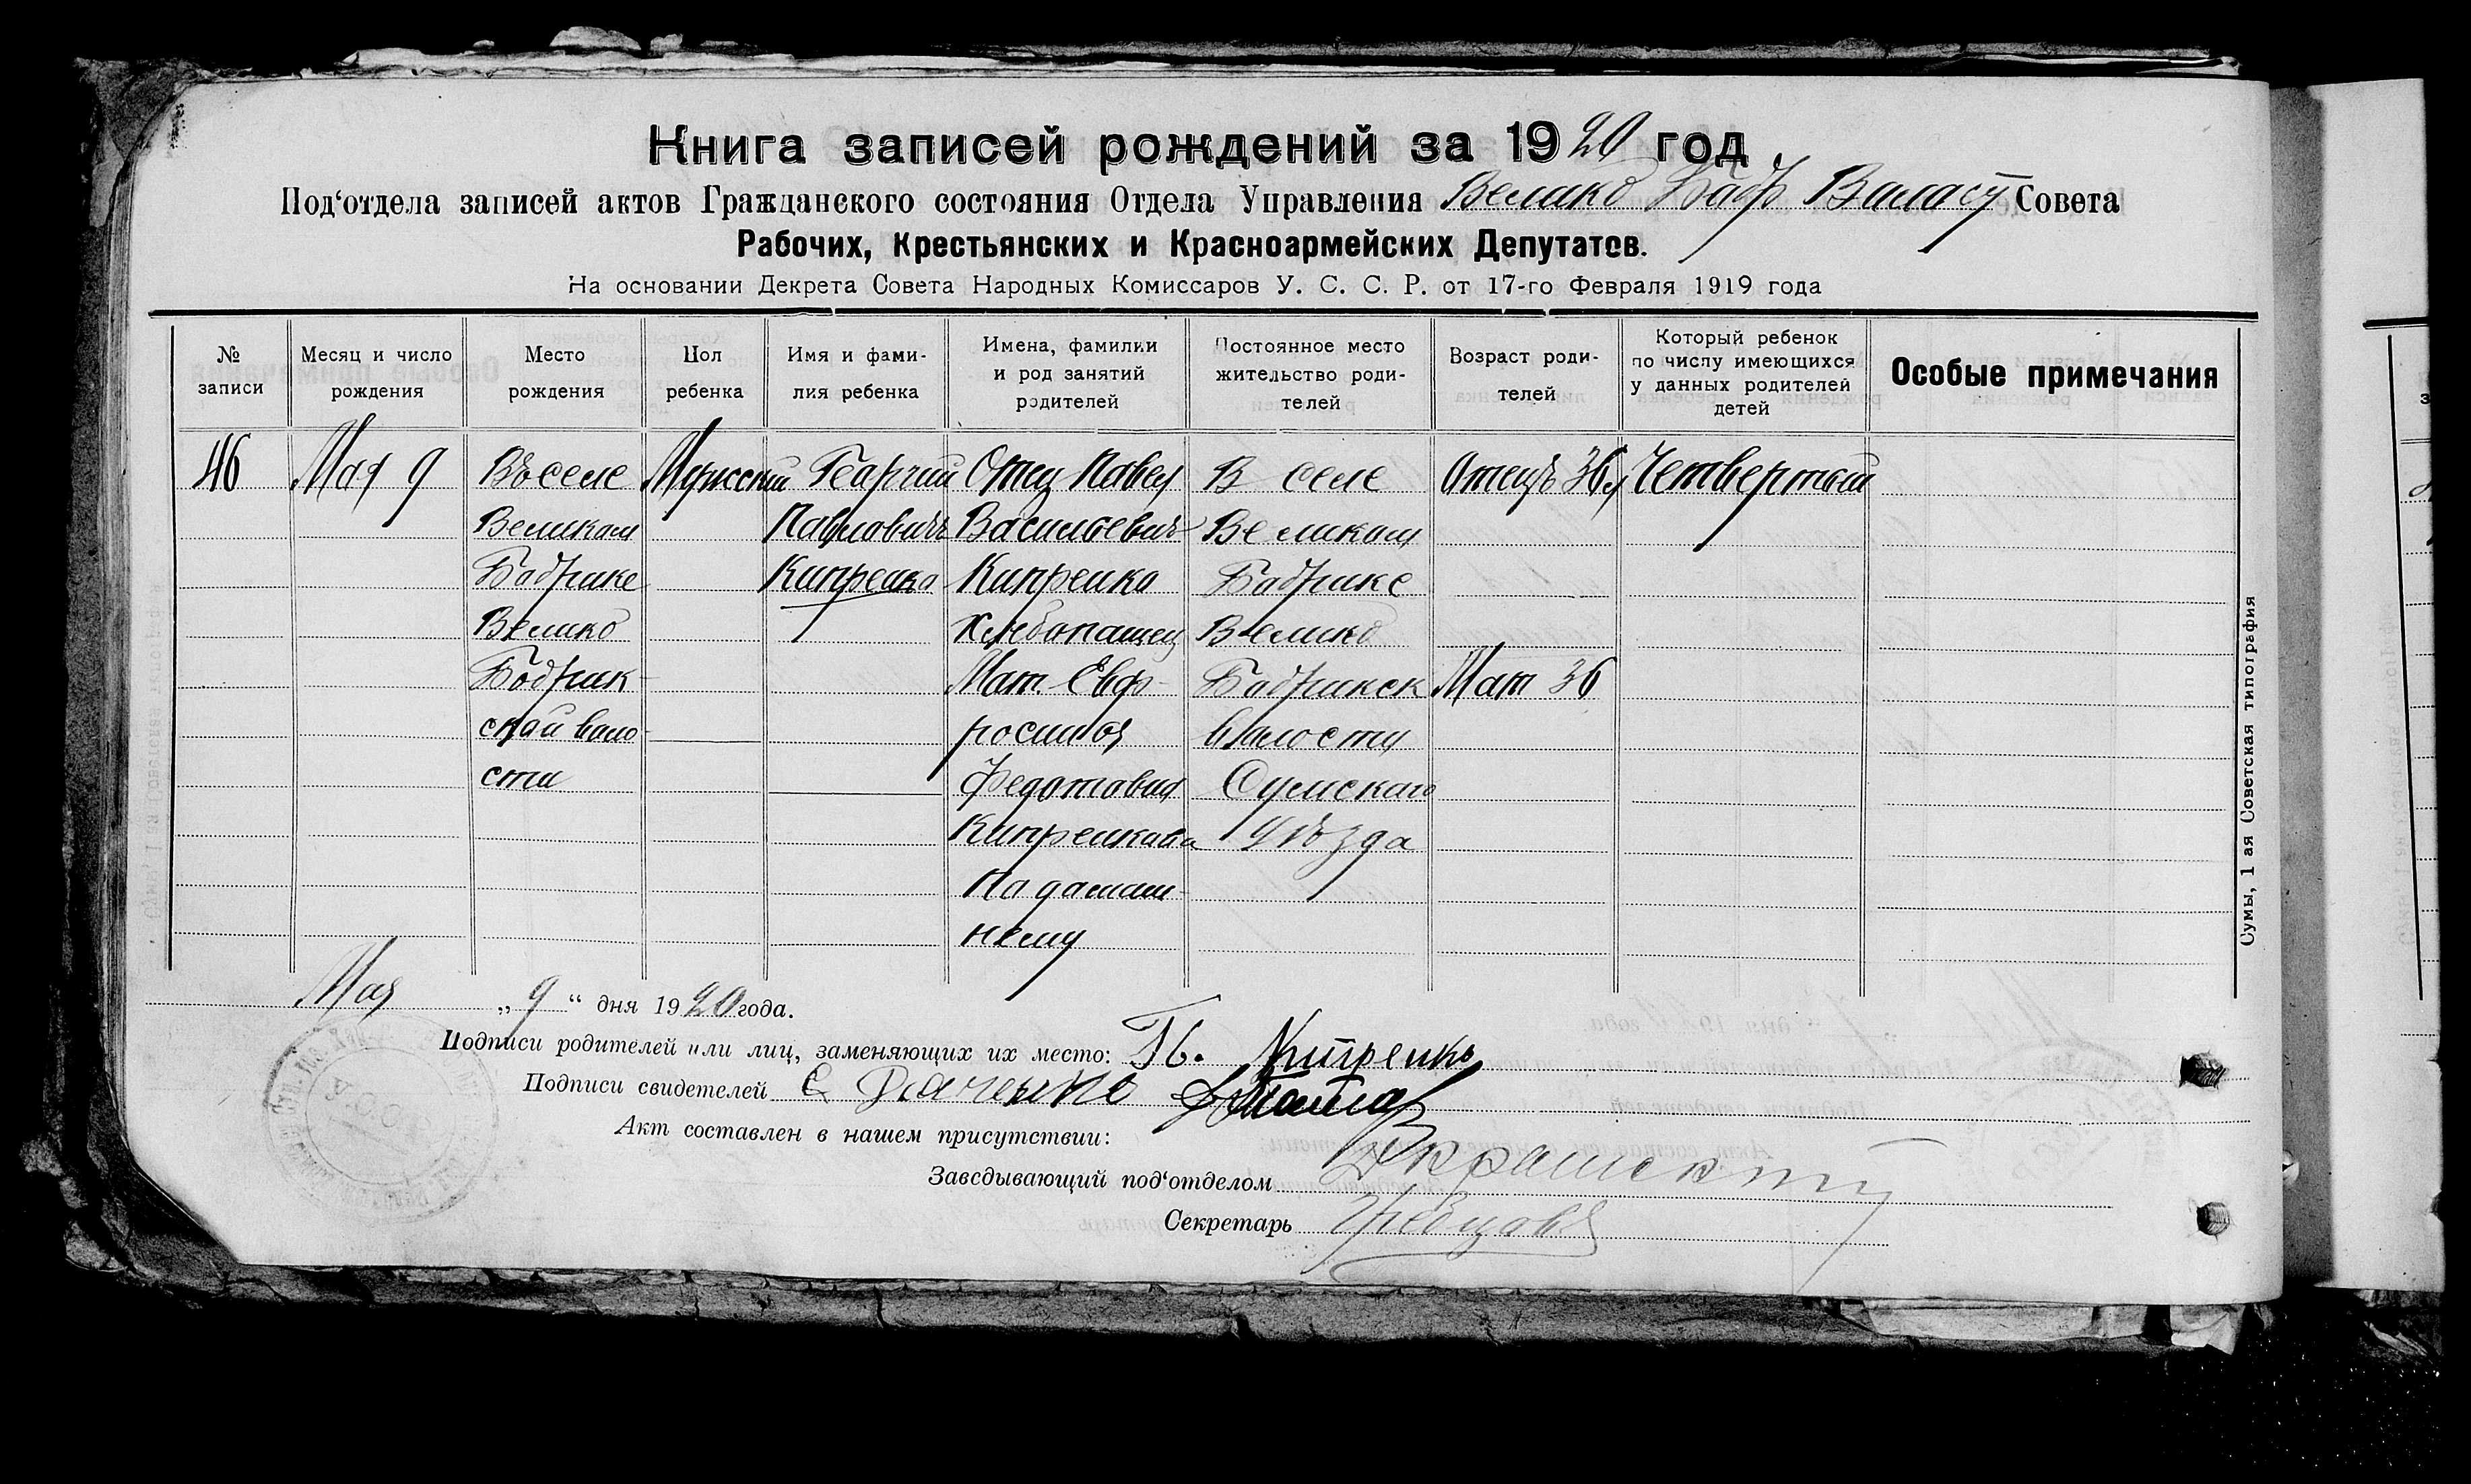 Книга записей рождений за 1920 год
Под‘отдела записей актов Гражданского состояния Отдела Управления Велико Бобр Валасу Совета
Рабочих, Крестьянских и Красноармейских Депутатов.
На основании Декрета Совета Народных Комиссаров У. С. С. Р. от 17-го Февраля 1919 года
№ записи
Месяц и число рождения
Место рождения
Пол ребенка
Имя и фамилия ребенка
Имена, фамилии и род занятий родителей
Постоянное место жительство родителей
Возраст родителей
Который ребенок по числу имеющихся у данных родителей детей
Особые примечания
46 Мая 9 Въ селе Мужский Геаргий Отец Павел В селе Отецъ 36 Четвертый
Великам Павловичъ Васильевич Великом
Бобрике Кипренко Кипренко Бобрике
Велико Хлебопашец Велико
Бобрик Мат. Евф Бобрикск Мат 36
скай воло росинья валости
сти Федотовна Сумскаго
Кипренкава уѣзда
По дамаш
нему
Мая „9“ дня 1920 года.
Подписи родителей или лиц, заменяющих их место: Кипренко
Подписи свидетелей
Акт составлен в нашем присутствии:
Заведывающий под‘отделом
Секретарь
Сумы, 1 ая Советская типография